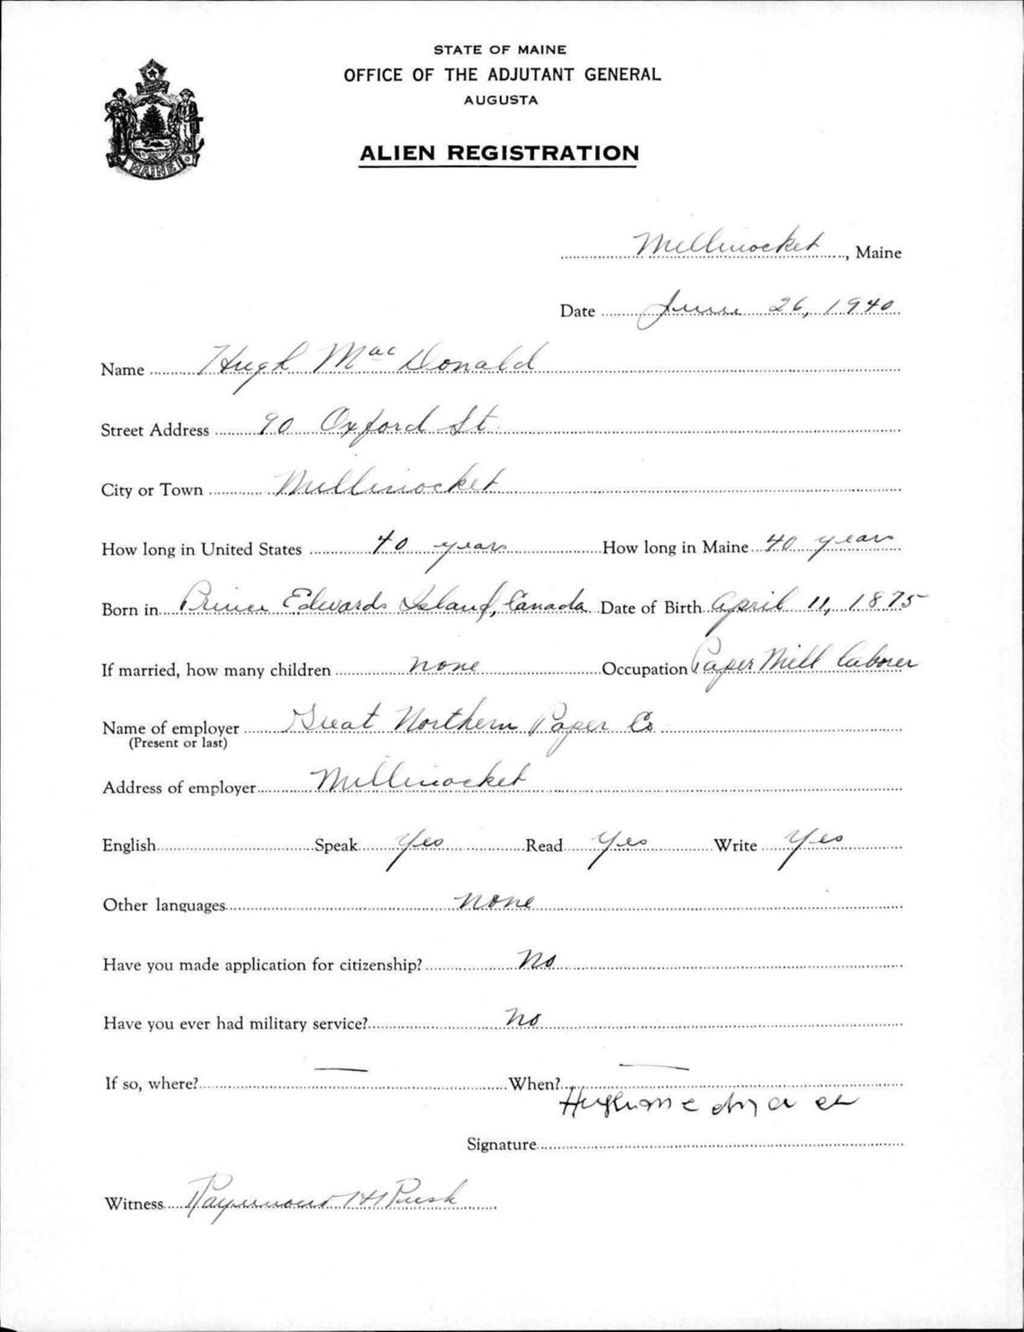 STATE OF MAINE
OFFICE OF THE ADJUTANT GENERAL
AUGUSTA
ALIEN REGISTRATION
MAINE
Millinocket, Maine
Date June 26, 1940
Name Hugh MacDonald
Street Address 90 Oxford St
City or Town Millinocket
How long in United States 40 years How long in Maine 40 years
Born in Prince Edwards Island, Canada Date of Birth April 11, 1875
If married, how many children none Occupation Paper Mill laborer
Name of employer Great Northern Paper Co
(Present or last)
Address of employer Millinocket
English Speak Yes Read Yes Write Yes
Other languages none
Have you made application for citizenship? No
Have you ever had military service? No
If so, where? — When? —
Signature
Witness Raymond H Rush